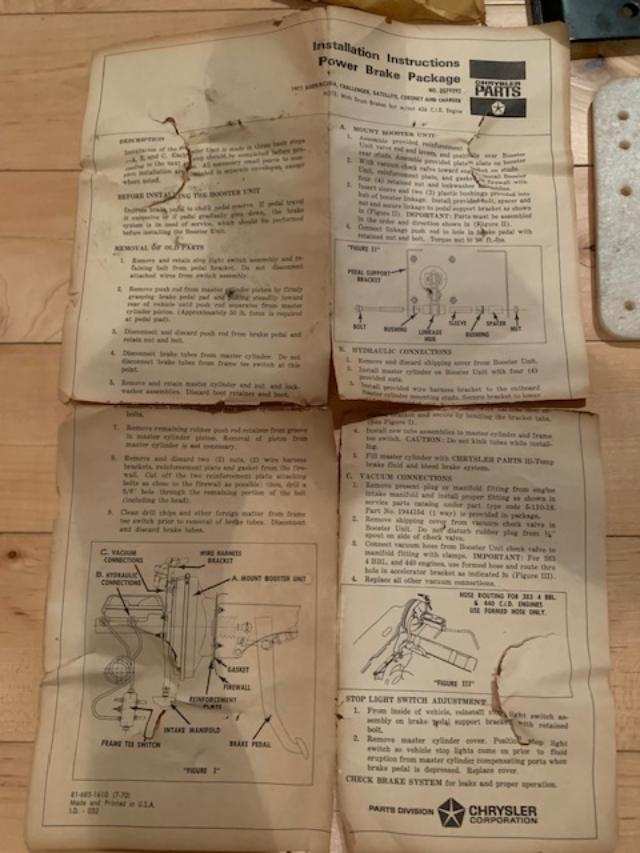 Installation Instructions
Power Brake Package
CHRYSLER
PARTS
BARRACUDA, CHALLENGER, SATELLITE, CORONET AND CHARGER
NOTE: With Drum Brakes
DESCRIPTION
BEFORE INSTALLING THE BOOSTER UNIT
before installing the Booster Unit.
REMOVAL OF OLD PARTS
1. Remove and retain stop light switch assembly and re-
taining bolt from pedal bracket. Do not disconnect
attached wires from switch assembly.
2. Remove push rod from master cylinder pistons by firmly
grasping brake pedal pad and pulling steadily toward
rear of vehicle until push rod separates from master
cylinder piston. (Approximately 50 lb. force is required
at pedal pad).
3. Disconnect and discard push rod from brake pedal and
retain nut and bolt.
4. Disconnect brake tubes from master cylinder. Do not
disconnect brake tubes from frame tee switch at this
point.
5. Remove and retain master cylinder and nut and lock-
washer assemblies. Discard boot retainer and boot.
bolts.
7. Remove remaining rubber push rod retainer from groove
in master cylinder piston. Removal of piston from
master cylinder is not necessary.
8. Remove and discard two (2) nuts, (2) wire harness
brackets, reinforcement plate and gasket from the fire-
wall. Cut off the two reinforcement plate attaching
bolts as close to the firewall as possible; then, drill a
hole through the remaining portion of the bolt
(including the head).
9. Clean drill chips and other foreign matter from frame
tee switch prior to removal of brake tubes. Disconnect
and discard brake tubes.
C. VACUUM
CONNECTIONS
WIRE HARNESS
BRACKET
B. HYDRAULIC
CONNECTIONS
A. MOUNT BOOSTER UNIT
GASKET
FIREWALL
REINFORCEMENT
PLATE
INTAKE MANIFOLD
FRAME TEE SWITCH
BRAKE PEDAL
"FIGURE I"
81-685-1610 (7-70)
Made and Printed in U.S.A.
I.D. - 052
A. MOUNT BOOSTER UNIT
1. Assemble provided reinforcement
2. With vacuum check valve toward
3. Insert sleeve and two (2) plastic bushings provided into
hub of booster linkage. Install provided bolt, spacer and
nut and secure linkage to pedal support bracket as shown
in (Figure II). IMPORTANT: Parts must be assembled
in the order and direction shown in (Figure II).
4. Connect linkage push rod to hole in brake pedal with
retained nut and bolt. Torque nut to ft.-lbs.
"FIGURE II"
PEDAL SUPPORT
BRACKET
BOLT
BUSHING
LINKAGE
HUB
SLEEVE
BUSHING
SPACER
NUT
B. HYDRAULIC CONNECTIONS
1. Remove and discard shipping cover from Booster Unit.
2. Install master cylinder on Booster Unit with four (4)
provided nuts.
3. Install provided wire harness bracket to the outboard
master cylinder mounting studs. Secure bracket to lower
and secure by bending the bracket tabs.
(See Figure I).
4. Install new tube assemblies to master cylinder and frame
tee switch. CAUTION: Do not kink tubes while install-
ing.
5. Fill master cylinder with CHRYSLER PARTS Hi-Temp
brake fluid and bleed brake system.
C. VACUUM CONNECTIONS
1. Remove present plug or manifold fitting from engine
intake manifold and install proper fitting as shown in
service parts catalog under part type code 5-110-18.
Part No. 1944104 (1 way) is provided in package.
2. Remove shipping cover from vacuum check valve in
Booster Unit. Do not disturb rubber plug from
spout on side of check valve.
3. Connect vacuum hose from Booster Unit check valve to
manifold fitting with clamps. IMPORTANT: For 383
4 BBL. and 440 engines, use formed hose and route thru
hole in accelerator bracket as indicated in (Figure III).
4. Replace all other vacuum connections.
HOSE ROUTING FOR 383 4 BBL.
& 440 C.I.D. ENGINES
USE FORMED HOSE ONLY.
"FIGURE III"
STOP LIGHT SWITCH ADJUSTMENT
1. From inside of vehicle, reinstall stop light switch as-
sembly on brake pedal support bracket with retained
bolt.
2. Remove master cylinder cover. Position stop light
switch so vehicle stop lights come on prior to fluid
eruption from master cylinder compensating ports when
brake pedal is depressed. Replace cover.
CHECK BRAKE SYSTEM for leaks and proper operation.
PARTS DIVISION
CHRYSLER
CORPORATION